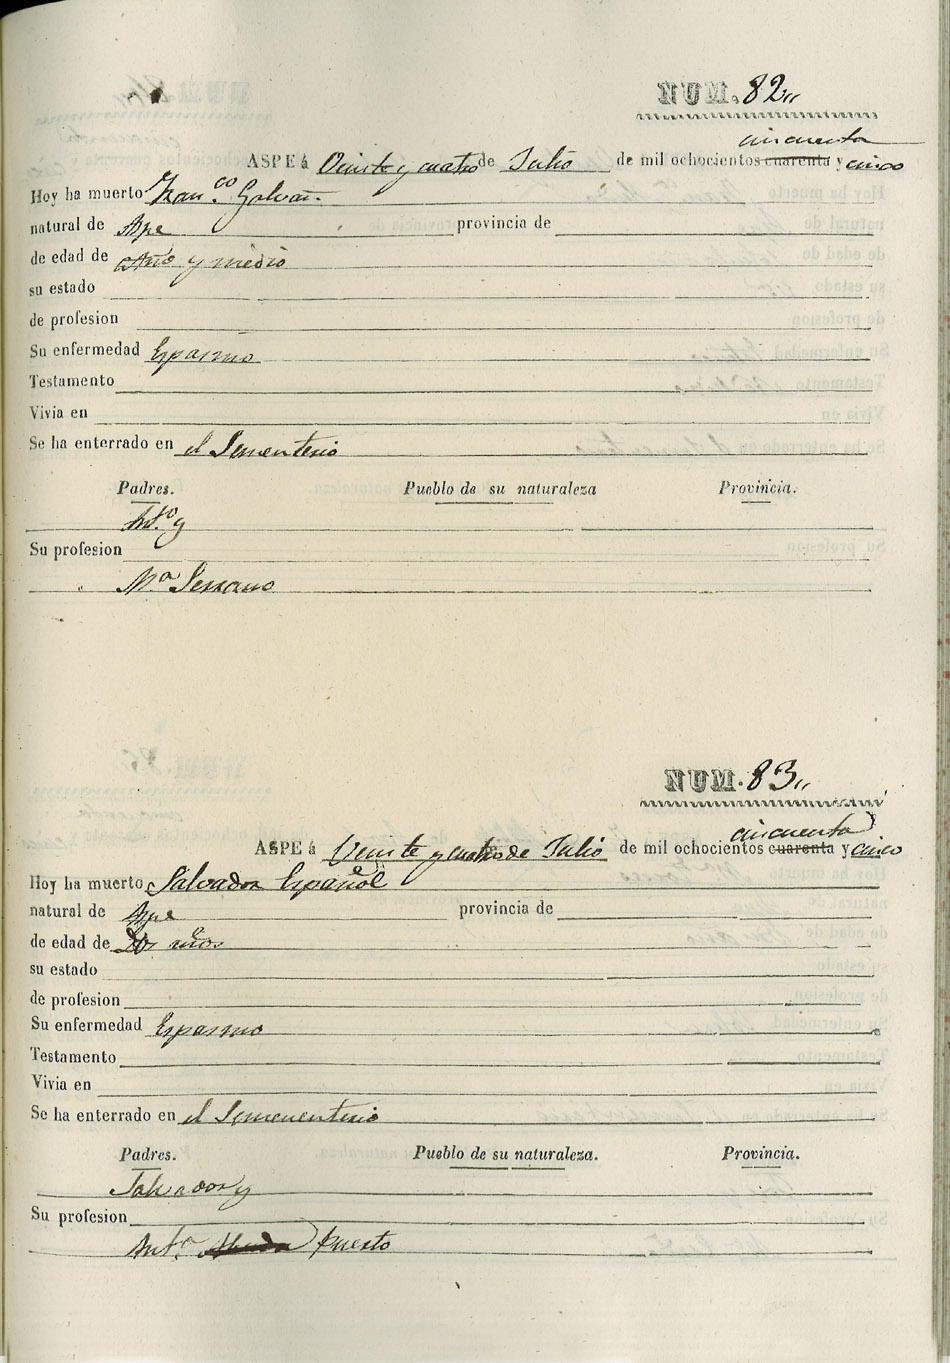 NUM. 82
cincuenta
ASPE á Veinte y cuatro de Julio de mil ochocientos cuarenta y cinco
Hoy ha muerto Fran.co Galvañ
natural de Aspe provincia de
de edad de Año y medio
su estado
de profesion
Su enfermedad Espasmo
Testamento
Vivia en
Se ha enterrado en el Sementerio
Padres. Pueblo de su naturaleza Provincia.
y
Su profesion
M.a Serrano
NUM. 83
cincuenta
ASPE á Veinte y cuatro de Julio de mil ochocientos cuarenta y cinco
Hoy ha muerto Salvador Español
natural de Aspe provincia de
de edad de Dos años
su estado
de profesion
Su enfermedad Espasmo
Testamento
Vivia en
Se ha enterrado en el Sementerio
Padres. Pueblo de su naturaleza. Provincia.
Salvador y
Su profesion
Ant.a Puesto